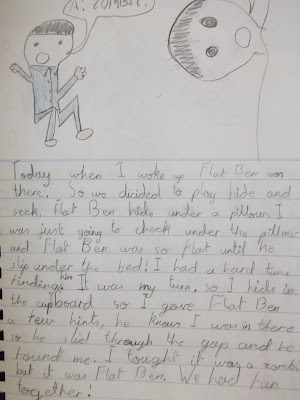 A! ZOMBIE!
Today when I woke up Flat Ben was
there. So we decided to play hide and
seek. Flat Ben hide under a pillow. I
was just going to check under the pillow
and Flat Ben was so flat until he
slip under the bed! I had a hard time
finding him. It was my turn, so I hide in
the cupboard so I gave Flat Ben
a few hints, he knows I was in there
so he slid through the gap and he
found me. I tought it was a zombi
but it was Flat Ben. We had fun
together!